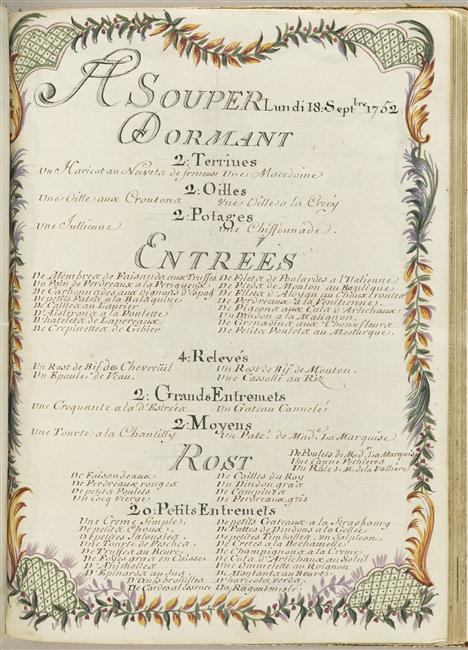 A Souper Lundi 18: Sept.bre 1752
Dormant
2: Terrines
Un Haricot au Navets de freneuse Une Macedoine
2: Oilles
Une Oille aux Croutons Une Oille a la Crecy
2: Potages
Une Jullienne Une Chiffonnade.
Entrées
De Membres de Faisands aux Truffes De Filets de Poulardes a l'Italienne
Un Pain de Perdreaux a la Perigueux De Pieds de Mouton au Basilique
De Carbonnades aux chanons d'Espag. De Filets d'Aloyau au Choux croutes
De petits Patés a la Balaquine De Perdreaux a la Feuillienne
De Cailles au Laurier De Pigeons aux Culs d'Artichaux
D'Aislerons a la Poulette Un Dindon a la Matignon.
D'hatelets de Lapereaux De Grenadins aux Choux fleurs
De Crepinettes de Gibier De Petits Poulets au Monturque.
4: Relevés
Un Rost de Bif de Chevreüil Un Rost de Bif de Mouton.
Un Epaule de Veau. Une Cassolle au Riz
2: Grands Entremets
Une Croquante a la d'Estrées Un Gateau Cannelé
2: Moyens
Une Tourte a la Chantilly Un Paté de Mad.e La Marquise
Rost
De Poulets de Mad. La Marquis
Une Canne Pethiere
Un Râle de M. de la Valliere
De Faisandeaux De Cailles du Roy
De Perdreaux rouges Un Dindon gras
De petits Poulets De Campines
Un Coq Vierge De Perdreaux gris
20: Petits Entremets
Une Crême Simple. De petits Gateaux a la Strasbourg
De petits Choux De Pattes de Dindons a la Coiles
De petites Jalousies De petites Timballes un Salpicon
Une Tourte de Pesches De Cretes a la Bechamelle
De Truffes au Beure De Champignons a la Crême
De Foies gras en Caisses De Culs d'Artichaux au Soleil
D'Animelles Une Aumelette au Roignon
D'Epinards au Jus De Montants au Beure
D'Oeufs brouilles D'haricots verds
De Cardes a l'essence Un Ragoust meslé